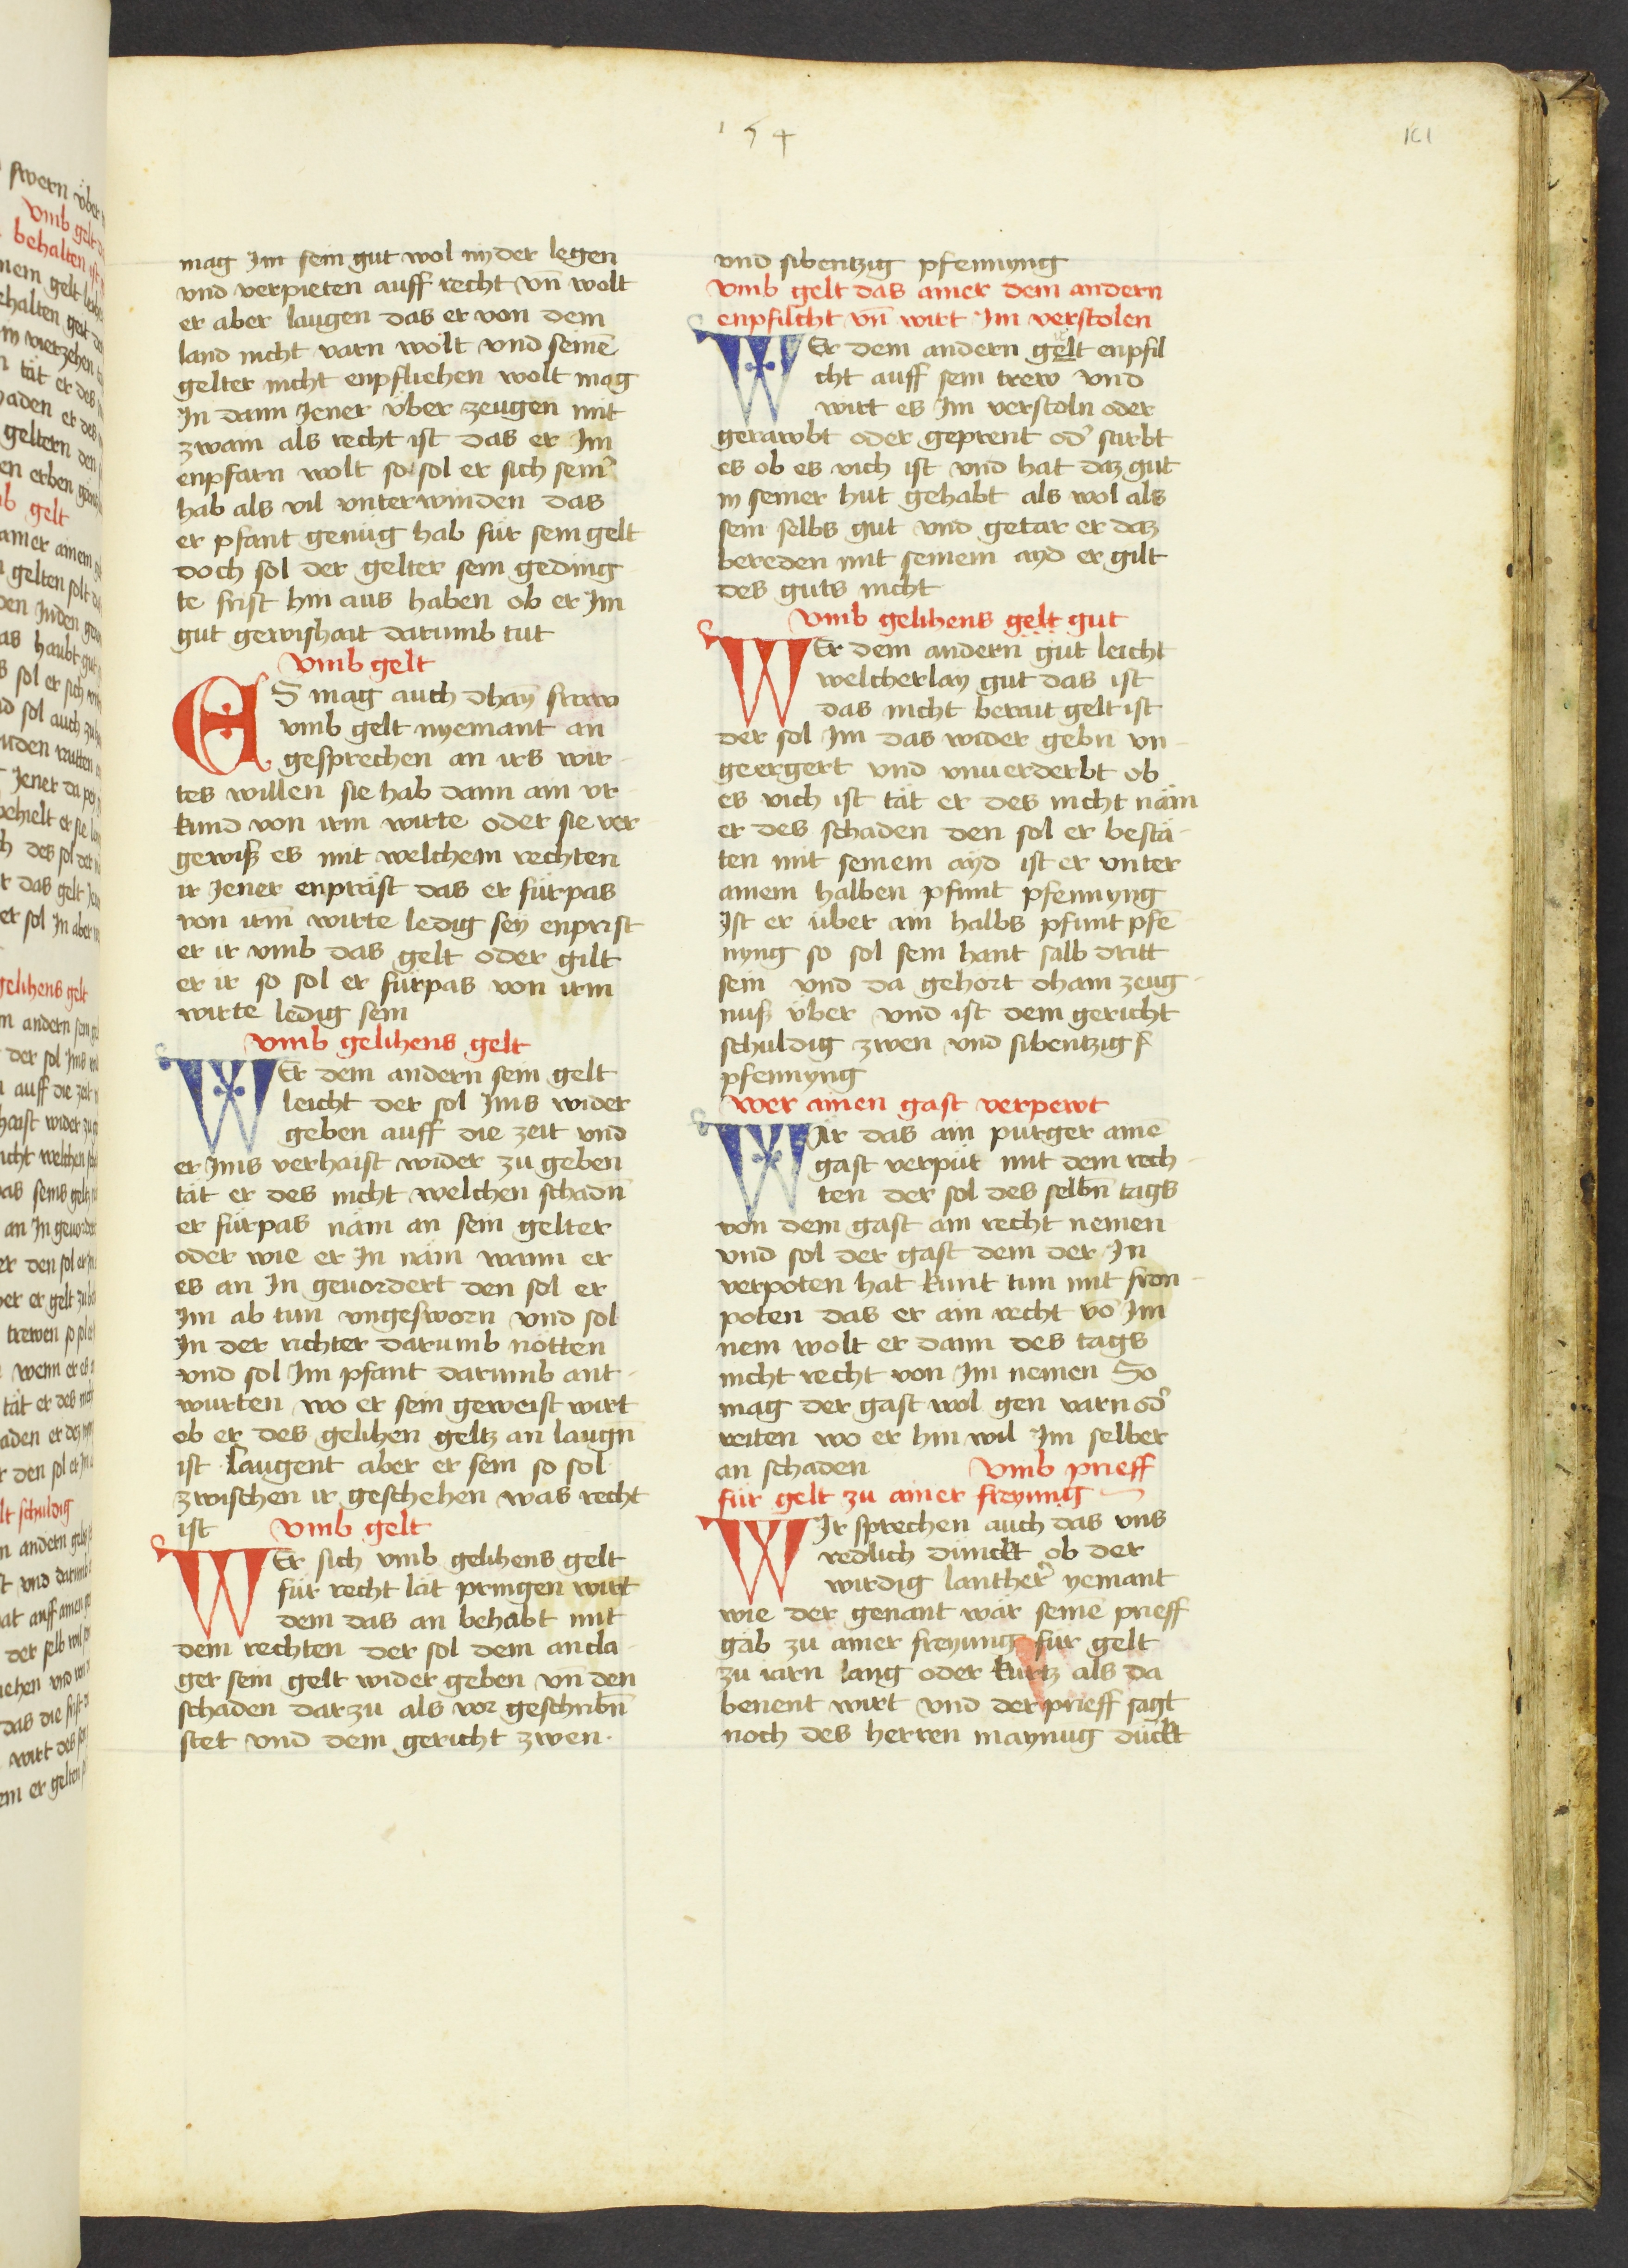 154
161
mag Im sein gut wol nyder legen
vnd verpieten auff recht vn̄ wolt
er aber laugen das er von dem
land nicht varn wolt vnd seinē
gelter nicht enpfliehen wolt mag
In dann Jener vber zeugen mit
zwain als recht ist das er Im
enpfarn wolt so sol er sich sein͛
hab als vil vnterwinden das
er pfant genug hab für sein gelt
doch sol der gelter sein geding
te frist hin aus haben ob er Im
gut gewishait darumb tut
Vmb gelt
ES mag auch dhay̅ fraw
vmb gelt nyemant an
gesprechen an irs wir-
tes willen sie hab dann ain vr-
kund von irm wirte oder sie ver
gewiß es mit welchem rechten
ir Jener enpräst das er fürpas
von irm̄ wirte ledig sey enprist
er ir vmb das gelt oder gilt
er ir so sol er fürpas von irm
wirte ledig sein
Vmb gelihens gelt
WEr dem andern sein gelt
leicht der sol Ims wider
geben auff die zeit vnd
er Ims verhaist wider zu geben
tät er des nicht welchen schadn̄
er fürpas näm an sein gelter
oder wie er In näm wann er
es an In geuordert den sol er
Im ab tun vngesworn vnd sol
In der richter darumb notten
vnd sol Im pfant darumb ant-
wurten wo er sein geweist wirt
ob er des gelihen geltz an laugn̄
ist Laugent aber er sein so sol
zwischen ir geschehen was recht
ist Vmb gelt
WEr sich vmb gelihens gelt
für recht lät pringen wirt
dem das an behabt mit
dem rechten der sol dem ancla-
ger sein gelt wider geben vn̄ den
schaden darzu als vor geschribn̄
stet vnd dem gericht zwen
vnd sibentzig pfennyng
Vmb gelt das ainer dem andern
enpfilcht vn̄ wirt Im verstolen
WEr dem andern gelt enpfil
cht auff sein trew vnd
wirt es Im verstoln oder
gerawbt oder geprent od͛ stirbt
es ob es vich ist vnd hat daz gut
in seiner hut gehabt als wol als
sein selbs gut vnd getar er daz
bereden mit seinem ayd er gilt
des guts nicht
Vmb gelihens gelt gut
WEr dem andern gut leicht
welcherlay gut das ist
das nicht berait gelt ist
der sol Im das wider gebn vn-
geergert vnd vnuerderbt ob
es vich ist tät er des nicht näm
er des schaden den sol er bestä-
ten mit seinem ayd ist er vnter
ainem halben pfunt pfennyng
Ist er über ain halbs pfunt pfe̅
nyng so sol sein hant salb dritt
sein vnd da gehort dhain zeug-
nuß über vnd ist dem gericht
schuldig zwen vnd sibentzig
pfennyng
Wer ainen gast verpewt
WIr das ain purger aine̅
gast verpüt mit dem rech-
ten der sol des selbn̄ tags
von dem gast ain recht nemen
vnd sol der gast dem der In
verpoten hat kunt tun mit fron-
poten das er ain recht vo̅ Im
nem wolt er dann des tags
nicht recht von Im nemen So
mag der gast wol gen varn od͛
reiten wo er hin wil Im selber
an schaden Vmb prieff
für gelt zu ainer freyung
WIr sprechen auch das vns
redlich dunckt ob der
wirdig lanther͛ yemant
wie der genant wär seine prieff
gäb zu ainer freyung für gelt
zu iarn lang oder kurtz als da
benent wirt vnd der prieff sagt
noch des herren maynug dückt